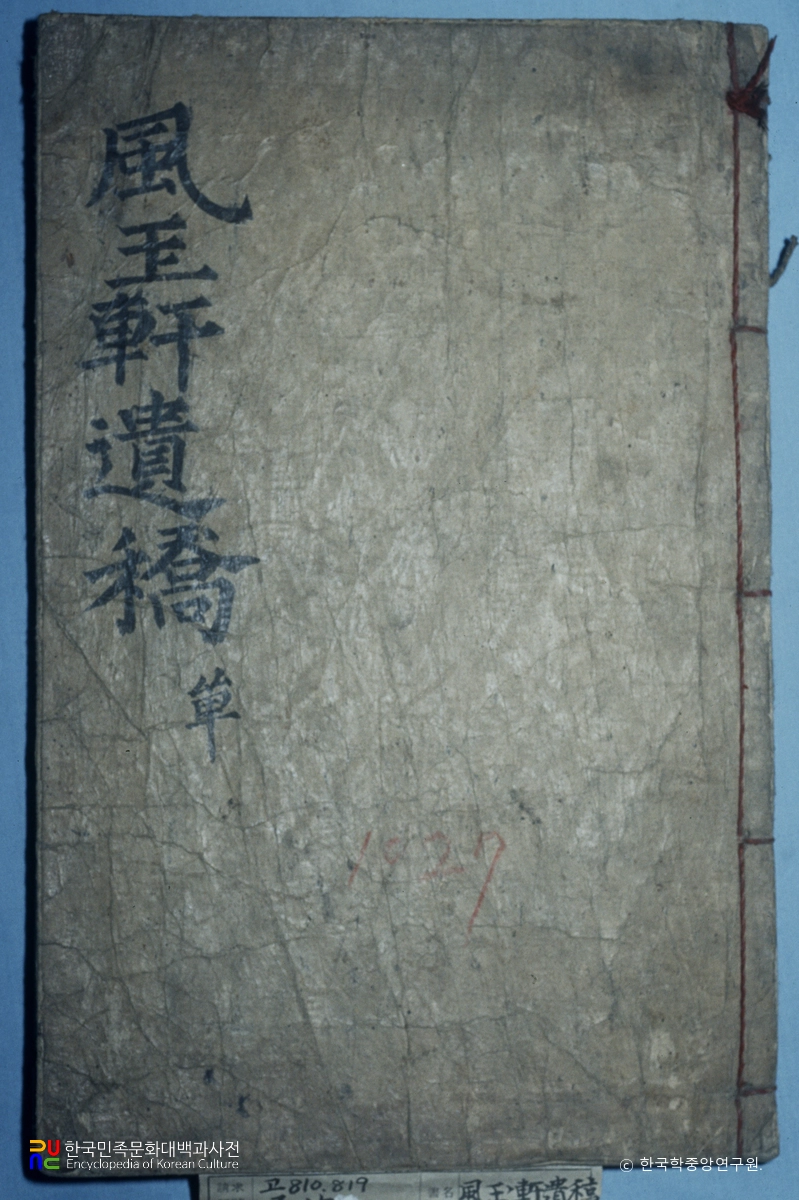 風玉軒遺稿 單
1927
한국민족문화대백과사전
Encyclopedia of Korean Culture
© 한국학중앙연구원.
고 810.819
書名 風玉軒遺稿